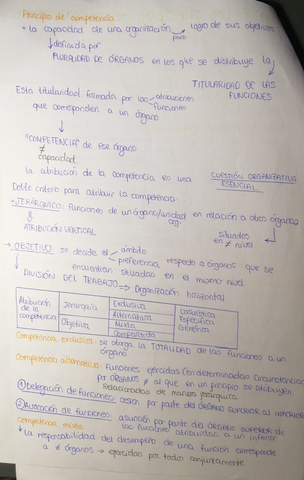 Principio de competencia
= la capacidad de una organización para logro de sus objetivos
derivada por
PLURALIDAD DE ÓRGANOS en los que se distribuye la
TITULARIDAD DE LAS FUNCIONES
Esta titularidad formada por las atribuciones
funciones
que corresponden a un órgano
"COMPETENCIA" de ese órgano
≠
capacidad
la atribución de la competencia es una CUESTIÓN ORGANIZATIVA
ESENCIAL
Doble criterio para atribuir la competencia:
→ JERÁRQUICO: Funciones de un órgano/unidad en relación a otros órganos
ATRIBUCIÓN VERTICAL
situados
en ≠ nivel
→ OBJETIVO: se decide el ámbito
preferencia respecto a órganos que se
encuentran situados en el mismo nivel.
DIVISIÓN DEL TRABAJO → Organización horizontal
Atribución de la competencia
Jerarquía
Objetiva
Exclusiva
Alternativa
Mixta
Compartida
Casuística
Específica
Genérica
Competencia exclusiva: se otorga la TOTALIDAD de las funciones a un
órgano
Competencia alternativa: Funciones ejercidas (en determinadas circunstancias)
por ÓRGANOS ≠ al que en un principio se atribuyen
Relacionados de manera jerárquica
① Delegación de funciones: cesión por parte del ÓRGANO SUPERIOR AL INFERIOR
② Avocación de funciones: asunción por parte del ÓRGANO SUPERIOR de
las funciones atribuidas a un inferior
Competencia mixta:
la responsabilidad del desempeño de una función corresponde
a ≠ órganos → ejercidas por todos conjuntamente.